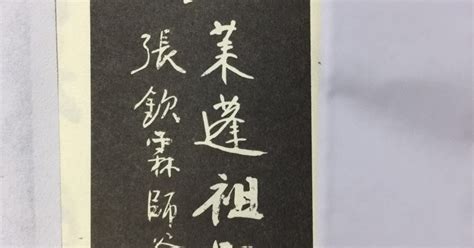 莱蓬祖
張欽霖師